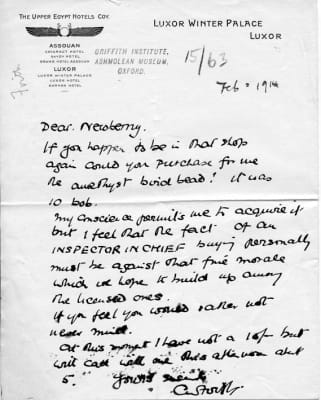 The Upper Egypt Hotels Coy.
ASSOUAN
CATARACT HOTEL
SAVOY HOTEL
GRAND HOTEL ASSOUAN
LUXOR
LUXOR WINTER PALACE
LUXOR HOTEL
KARNAK HOTEL
GRIFFITH INSTITUTE,
ASHMOLEAN MUSEUM,
OXFORD.
LUXOR WINTER PALACE
LUXOR
15/63
Firth
Feb = 19th
Dear. Newberry.
If you happen to be in that shop
again could you purchase for me
the amethyst bird bead! It was
10 bob.
My conscience permits me to acquire it
but I feel that the fact of an
INSPECTOR IN CHIEF buying personally
must be against that fine morale
which we hope to build up among
the licensed ones.
If you feel you would rather not
never mind.
At this moment I have not a 10/- but
will call and this afternoon abt
5.
Yours